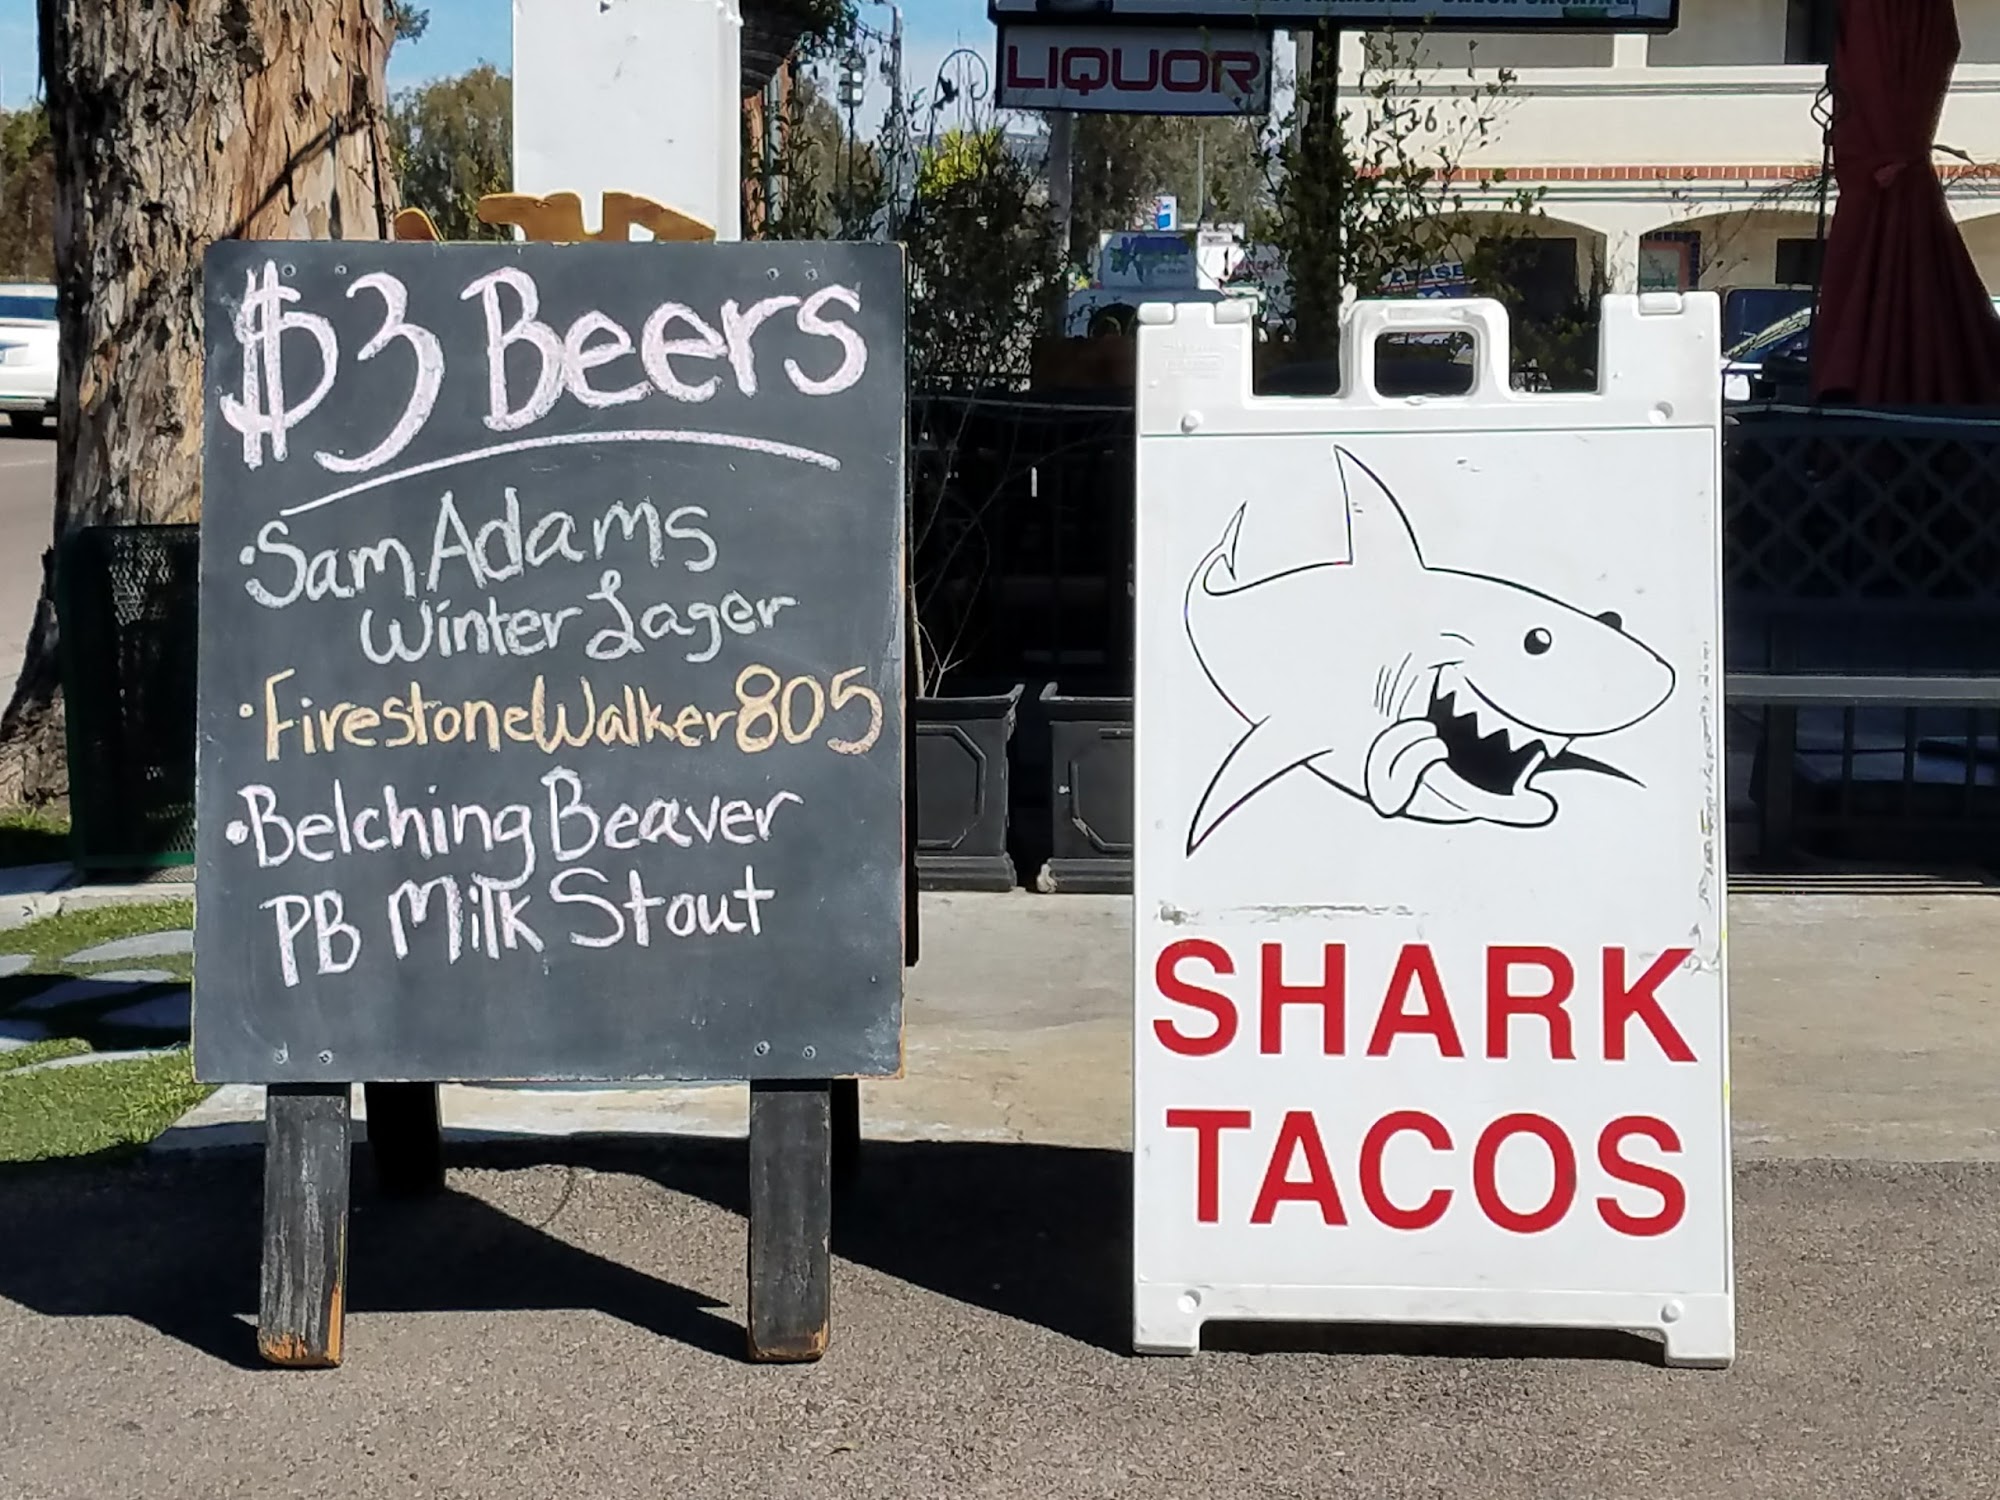 LIQUOR
$3 Beers
• Sam Adams
Winter Lager
• Firestone Walker 805
• Belching Beaver
PB Milk Stout
SHARK
TACOS